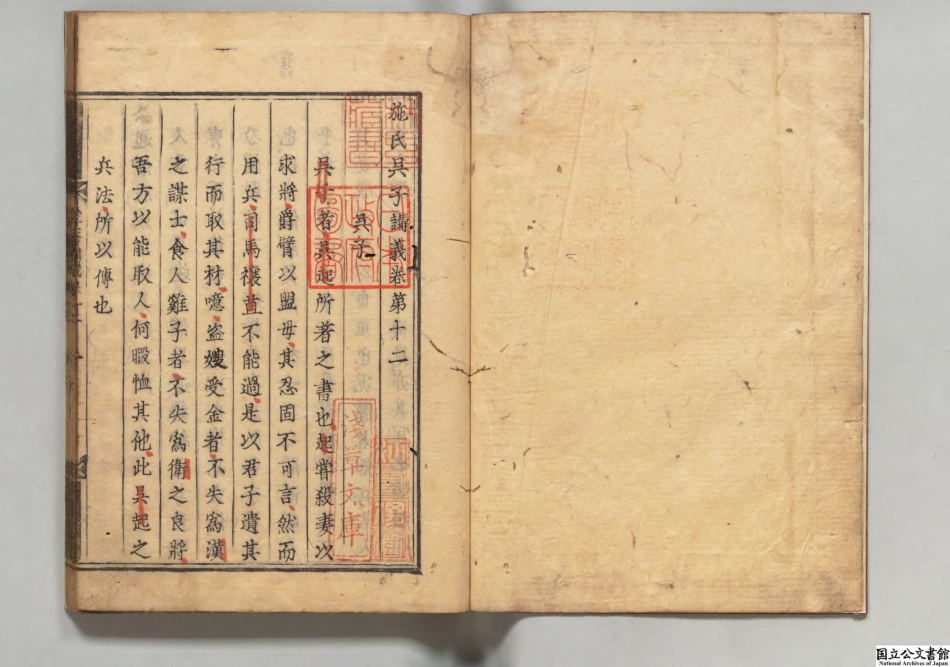 施氏吳子講義卷第十二
吳子
吳子者吳起所著之書也起嘗殺妻以
求將齧臂以盟母其忍固不可言然而
用兵司馬穰苴不能過是以君子遺其
行而取其材噫盜嫂受金者不失爲漢
之謀士食人雞子者不失爲衛之良將
吾方以能取人何暇恤其他此吳起之
兵法所以傳也
淺草文庫
国立公文書館
National Archives of Japan